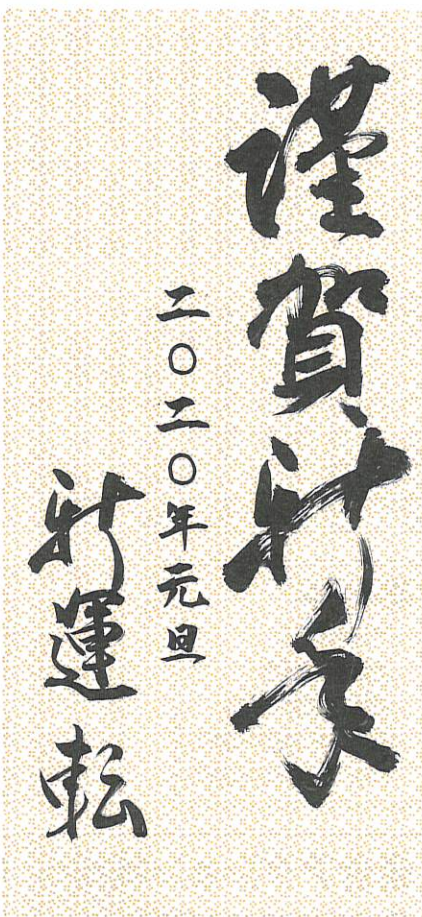 謹賀新年
二〇二〇年元旦
新運転